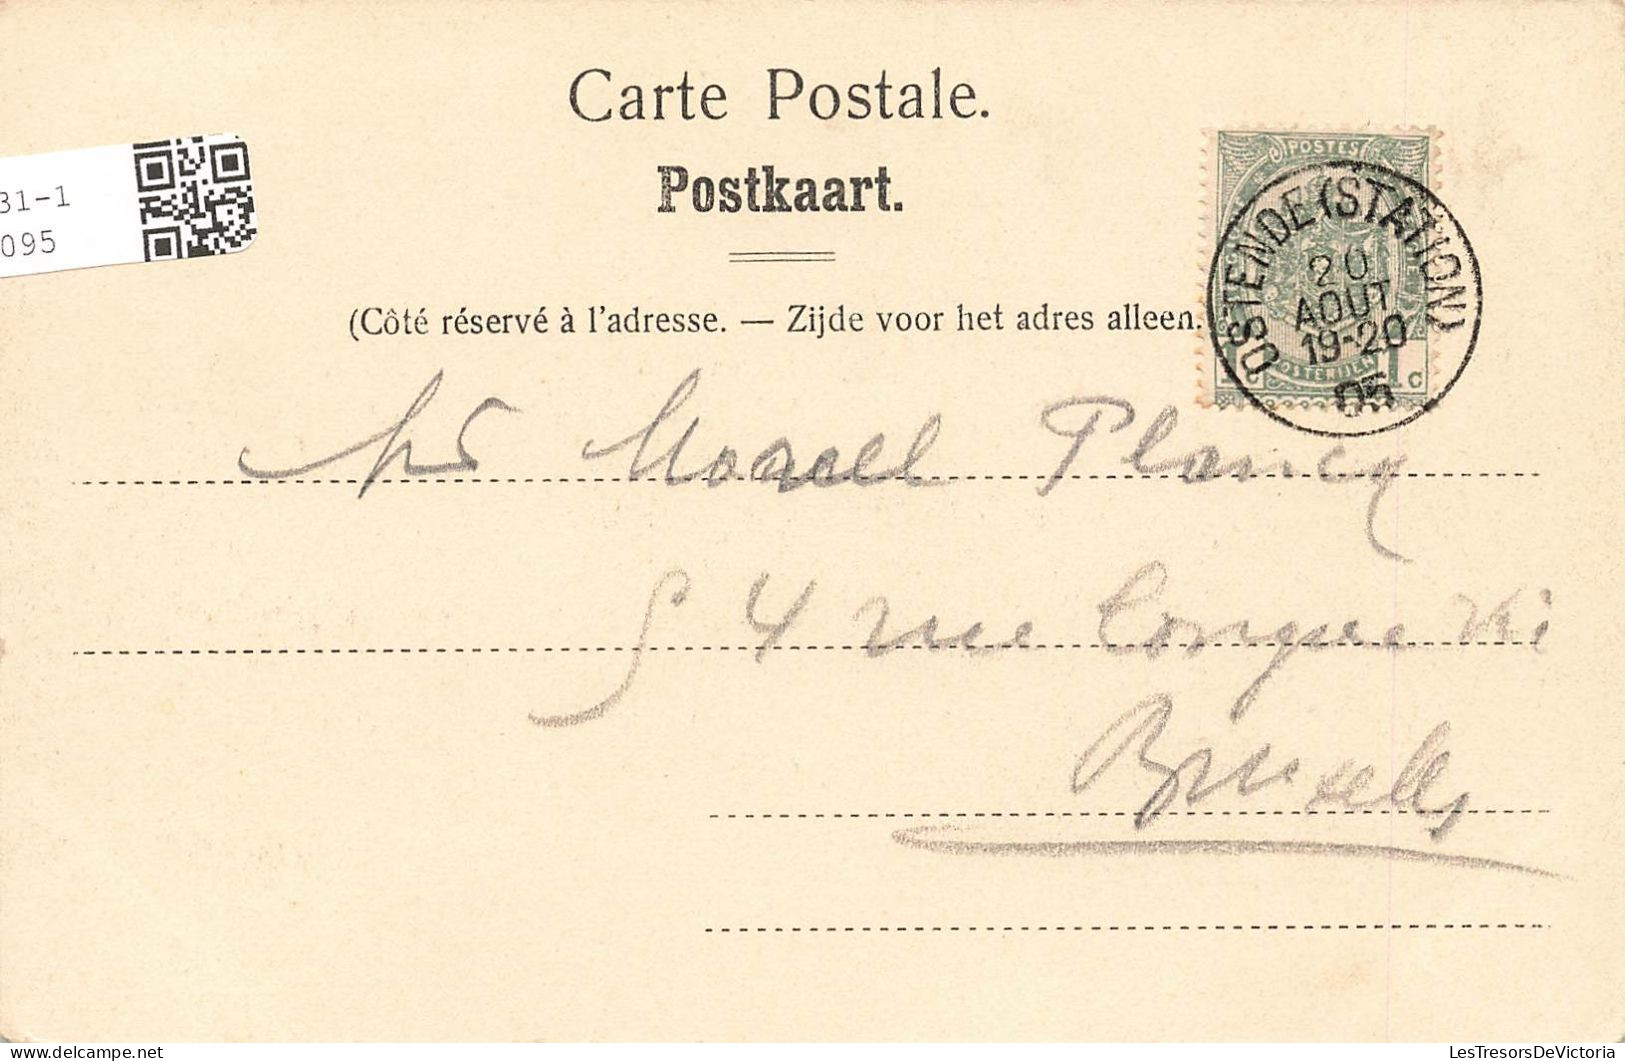 Carte Postale.
Postkaart.
31-1
095
(Côté réservé à l'adresse. — Zijde voor het adres alleen.
POSTES
1 C POSTERIJEN 1 C
OSTENDE (STATION)
20
AOUT
19-20
05
Marcel Plancq
54 rue
Bruxelles
LesTresorsDeVictoria